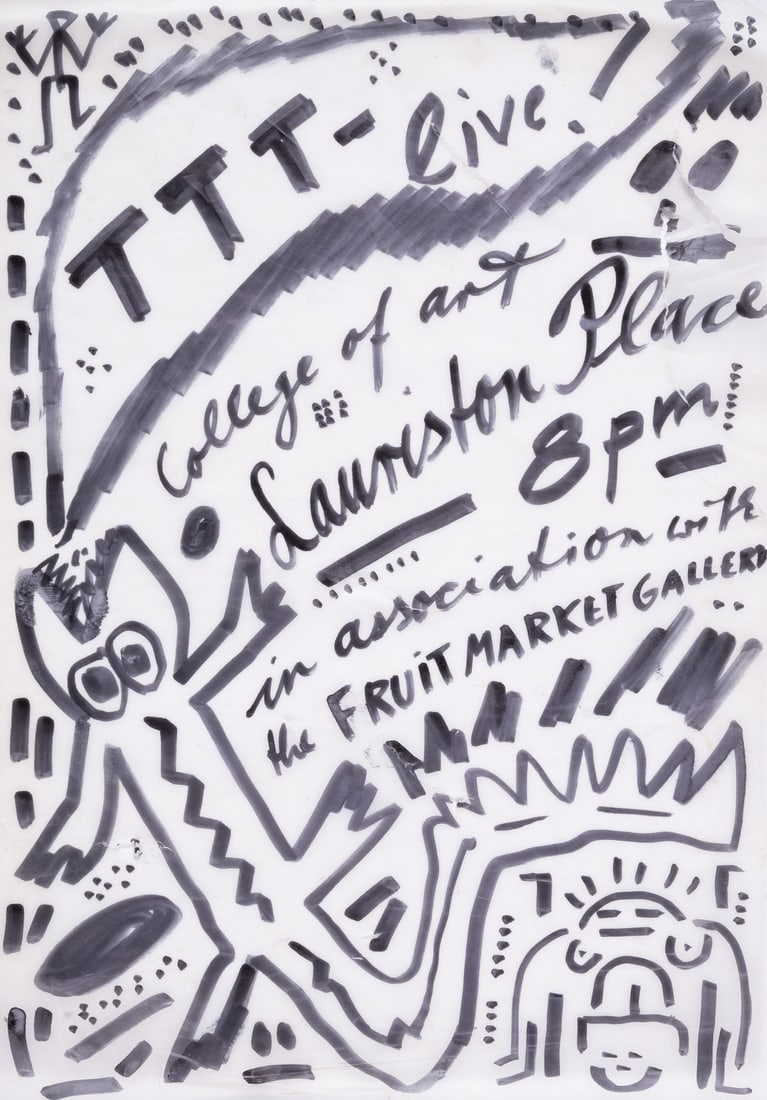 TTT - live.
College of art
Lauriston Place
8pm
in association with
the FRUIT MARKET GALLERY